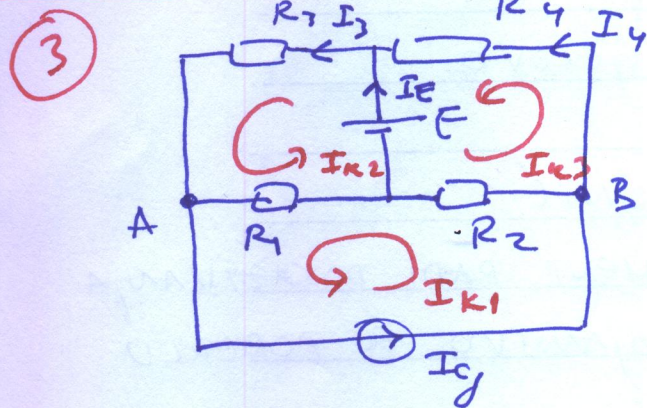 3
R3 I3 R4 I4
IE
E
IK2 IK3
A R1 R2 B
IK1
Icg